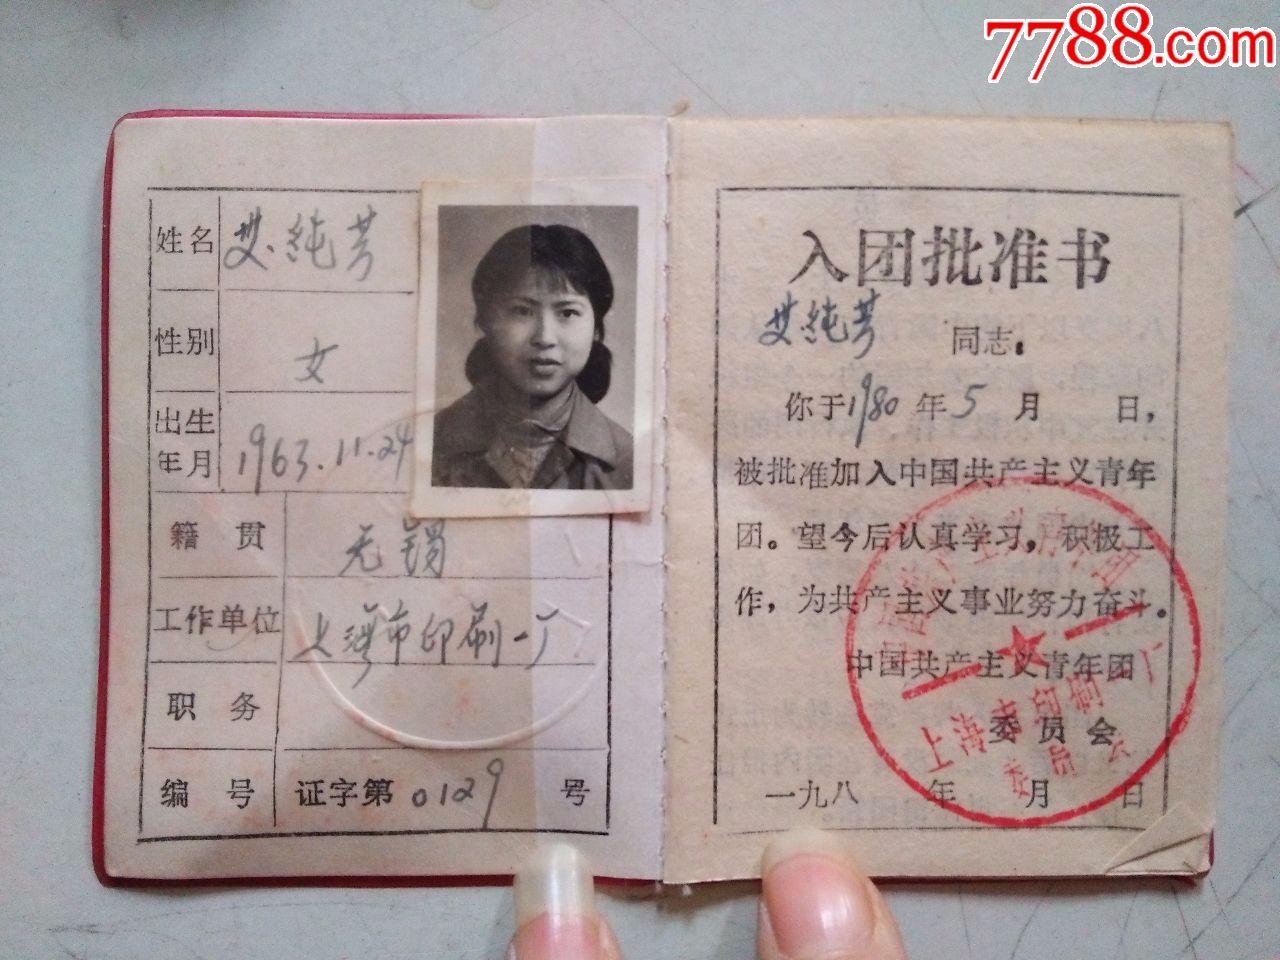 7788.com
姓名 艾純芳
性别 女
出生年月 1963.11.24
籍贯 无锡
工作单位 上海市印刷一厂
职务
编号 证字第0129号
入团批准书
艾純芳 同志：
你于1980年5月 日，
被批准加入中国共产主义青年
团。望今后认真学习，积极工
作，为共产主义事业努力奋斗。
中国共产主义青年团
委员会
一九八 年 月 日
中国共产主义青年团
上海市印刷一厂
委员会